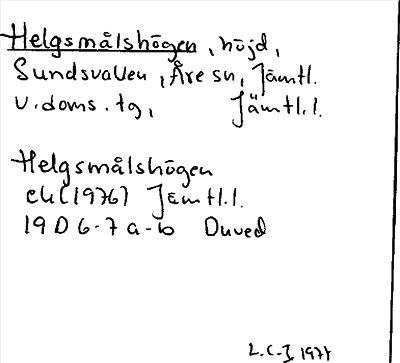 Helgsmålshögen, höjd,
Sundsvallen, Åre sn, Jämtl.
v. doms. tg, Jämtl.l.
Helgsmålshögen
ek (1976) Jämtl.l.
19 D 6-7 a-b Duved
L.C-J,